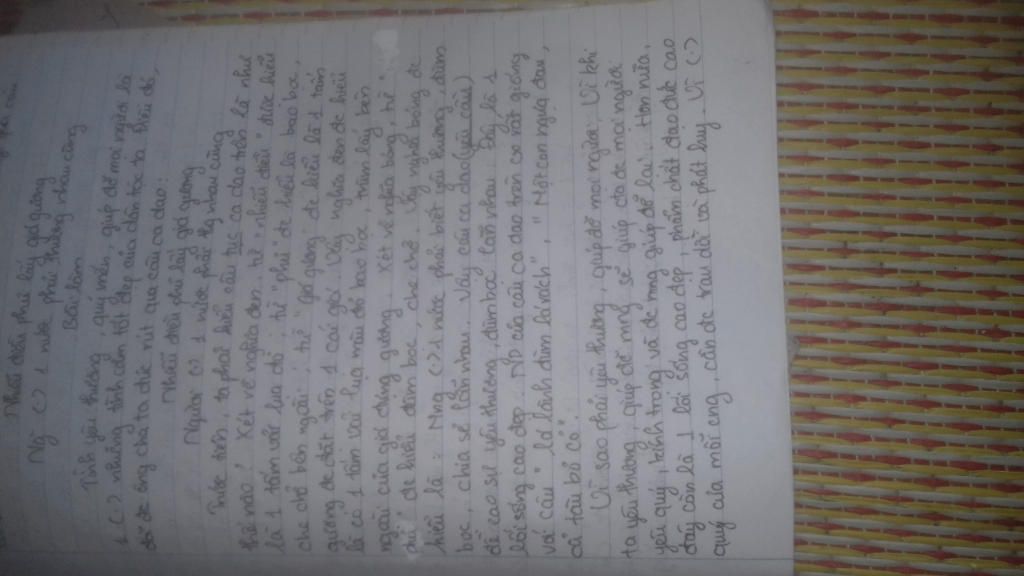 Nhiễu điều phủ lấy giá gương
Ng̃ (·) 1 nước phải thương nhau cùng
Bài làm
Tình yêu thương, quý mến, giúp đỡ mọi người là
1 (·) những tình cảm tốt đẹp của dân tộc ta. Điều đó,
đã đc ông cha ta đúc rút qua câu ca dao:
Nhiễu điều phủ lấy giá gương
Người (·) 1 nước phải thg nhau cùng
Trước tiên, ta phải hiểu câu tục ca dao trên là như
thế nào? Xét về nghĩa đen, từ "nhiễu điều" đúc hiểu
là 1 tấm vải lụa đỏ; từ "phủ" đc hiểu là bao bọc,
che chở bên ngoài; từ "giá gương" đc hiểu là 1 tấm
gương đc đặt trên 1 cái giá. Vậy nghĩa đen đc hiểu
là có 1 tấm vải lụa màu đỏ bao bọc, trùm lấy bên
ngoài của giá đựng gương. Xét về nghĩa bóng, từ "
phủ" đc hiểu đùm bọc, che chở. Vậy nghĩa bóng đc
hiểu là: Mng (·) 1 nước phải biết yêu thương, đùm
bọc, chia sẻ lẫn nhau. Vậy câu ca dao (yêu cầu)
đề cao sự yêu thương, đùm bọc lẫn nhau. Đây là 1
lối sống cao đẹp. ND của câu ca dao trên có nét giống
với câu "lá lành đùm lá rách", "Một con ngựa đau,
cả tàu bỏ cỏ".
Vì sao phải yêu thương, giúp đỡ mọi người? Vì khi
ta yêu thương, giúp đỡ mng sẽ giúp ta đc mọi người
yêu quý, kính trọng và đc mng giúp đỡ lại. Hơn nữa,
đây còn là 1 lối sống cao đẹp, phẩm chất đạo đức cao
quý của mỗi cng, cần đc trau dồi và phát huy. Vì (·)